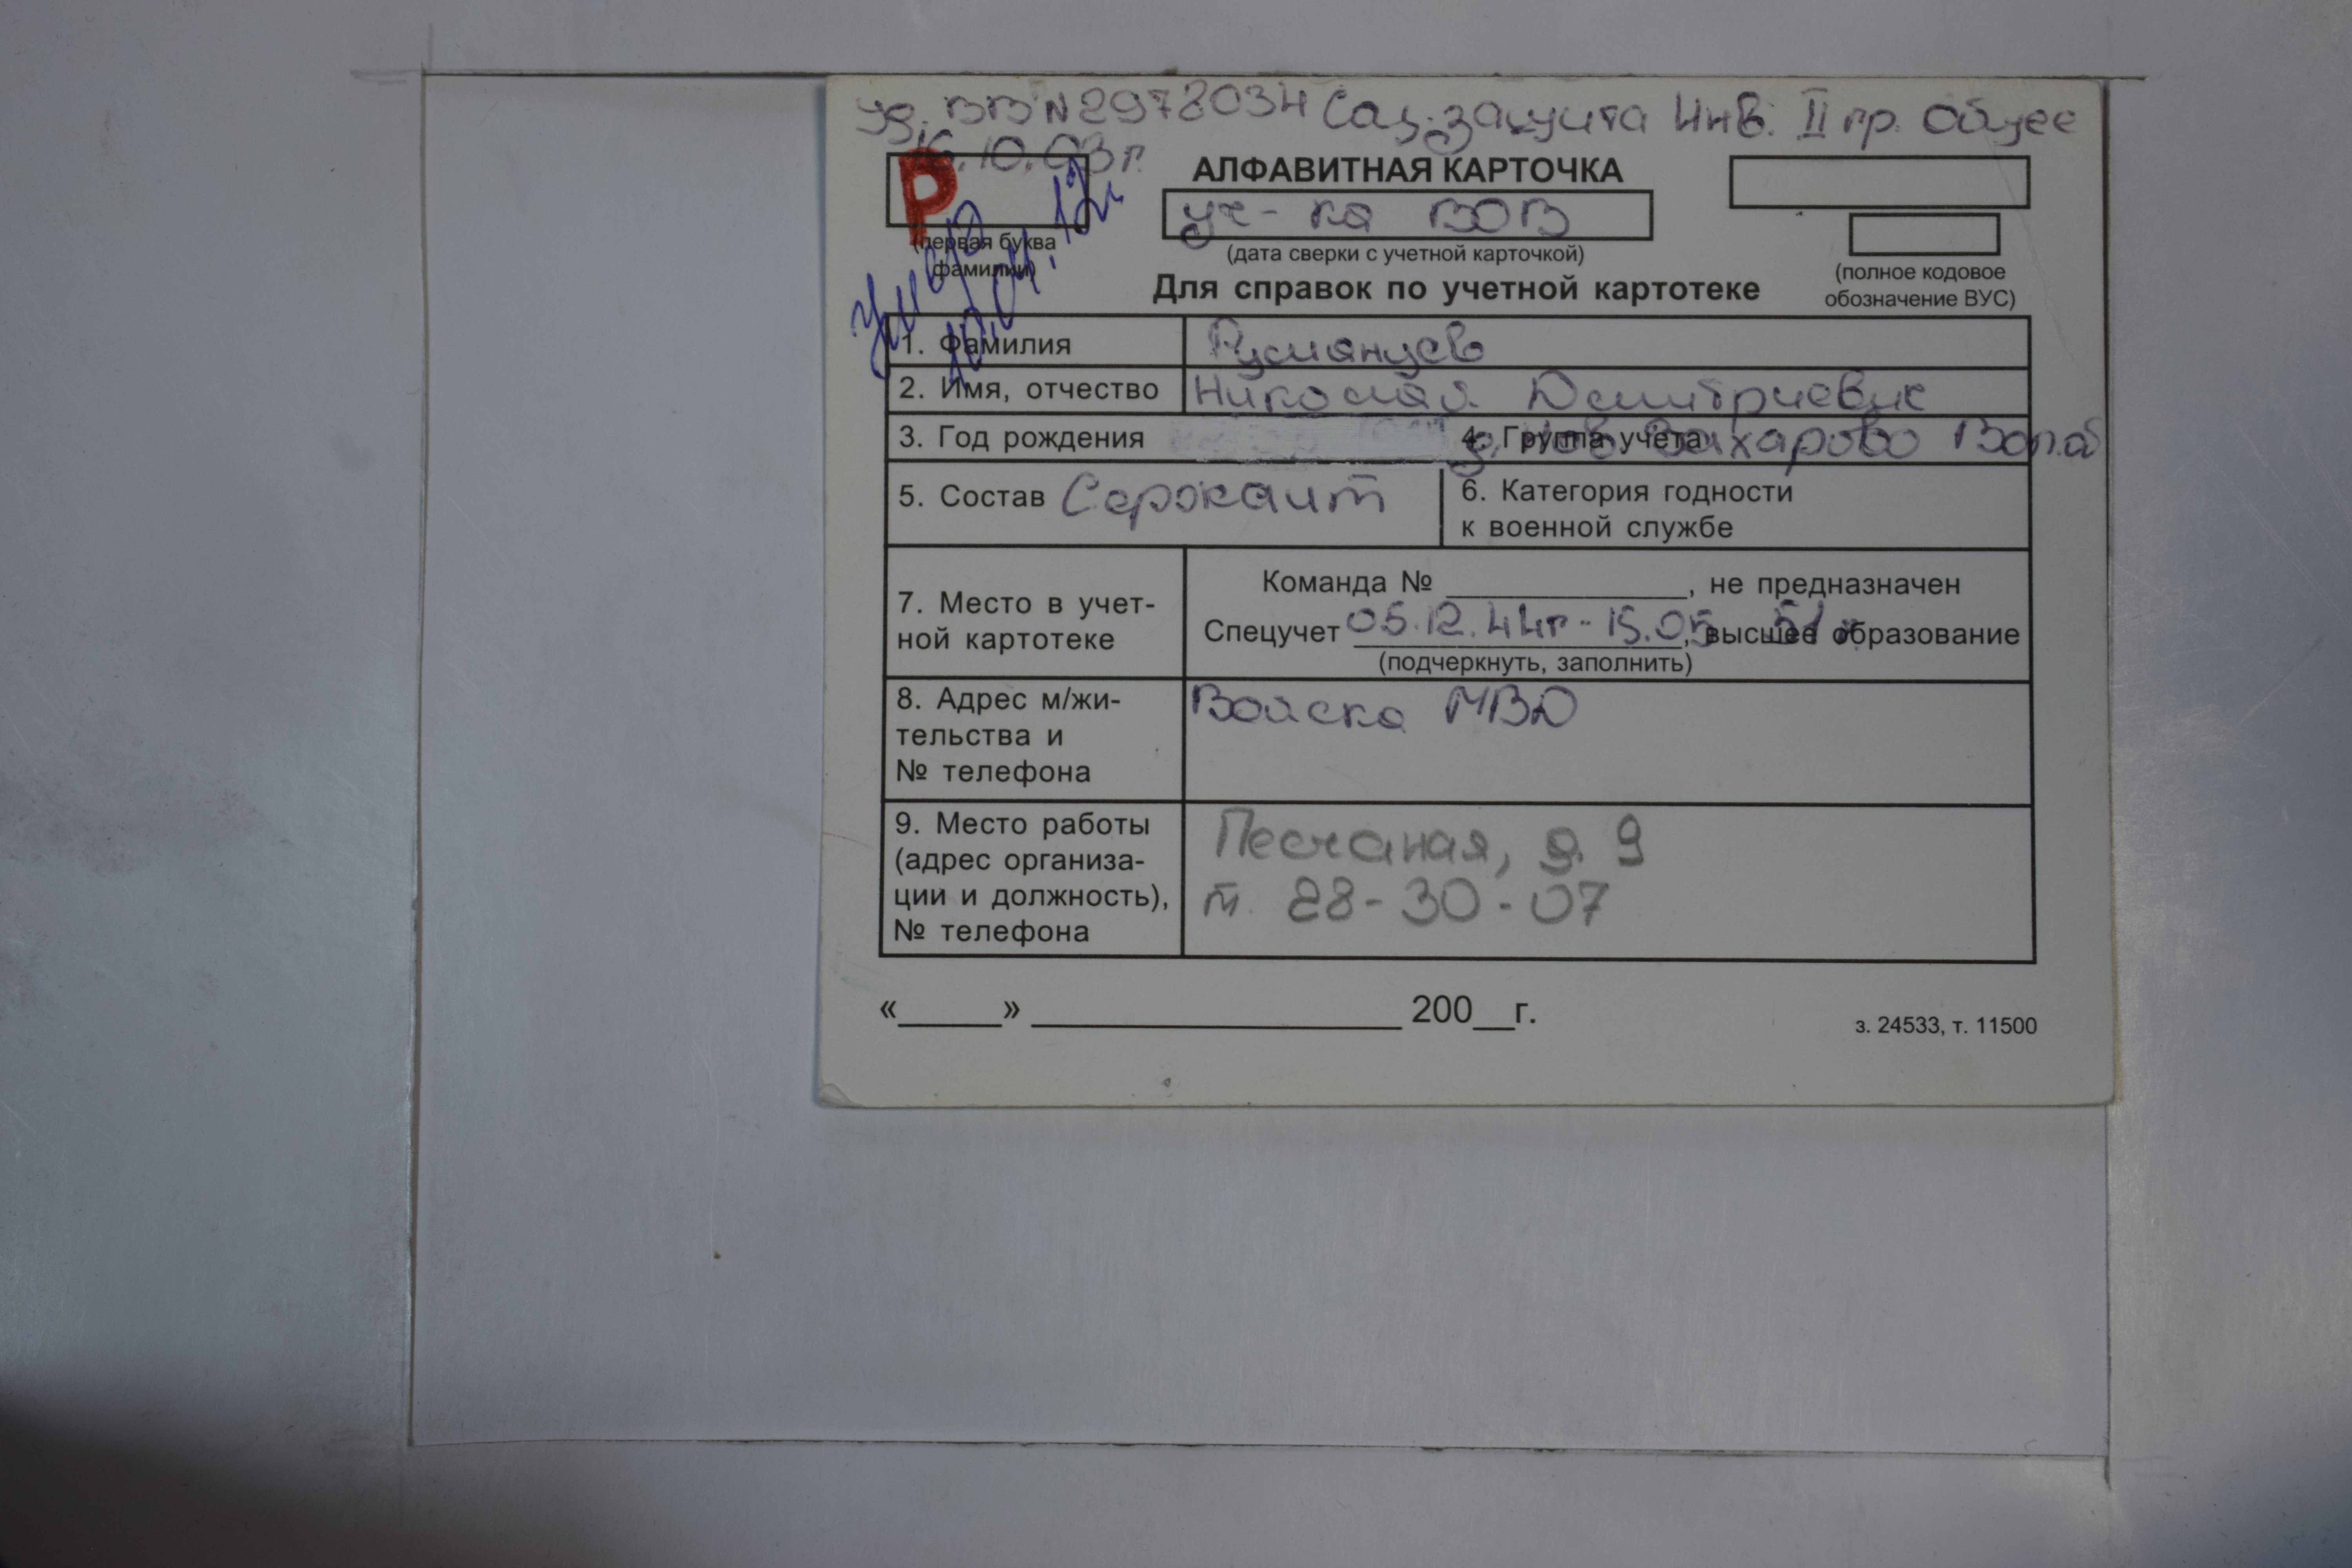 уд. ВВ N2972034 Соц. защита Инв. II гр. общее
16.10.03 г.
Р
АЛФАВИТНАЯ КАРТОЧКА
уч-ка ВОВ
(первая буква
фамилии)
(дата сверки с учетной карточкой)
(полное кодовое
обозначение ВУС)
Для справок по учетной картотеке
умер
10.04.12г
1. Фамилия Румянцев
2. Имя, отчество Николай Дмитриевич
3. Год рождения 4. Группа учета д. Захарово Вол.об
5. Состав Сержант
6. Категория годности
к военной службе
7. Место в учет-
ной картотеке
Команда № ____, не предназначен
Спецучет 05.12.44г - 15.05.51 г, высшее образование
(подчеркнуть, заполнить)
8. Адрес м/жи-
тельства и
№ телефона
Войска МВД
9. Место работы
(адрес организа-
ции и должность),
№ телефона
Песчаная, д. 9
т. 28-30-07
«____» ____ 200__г.
з. 24533, т. 11500